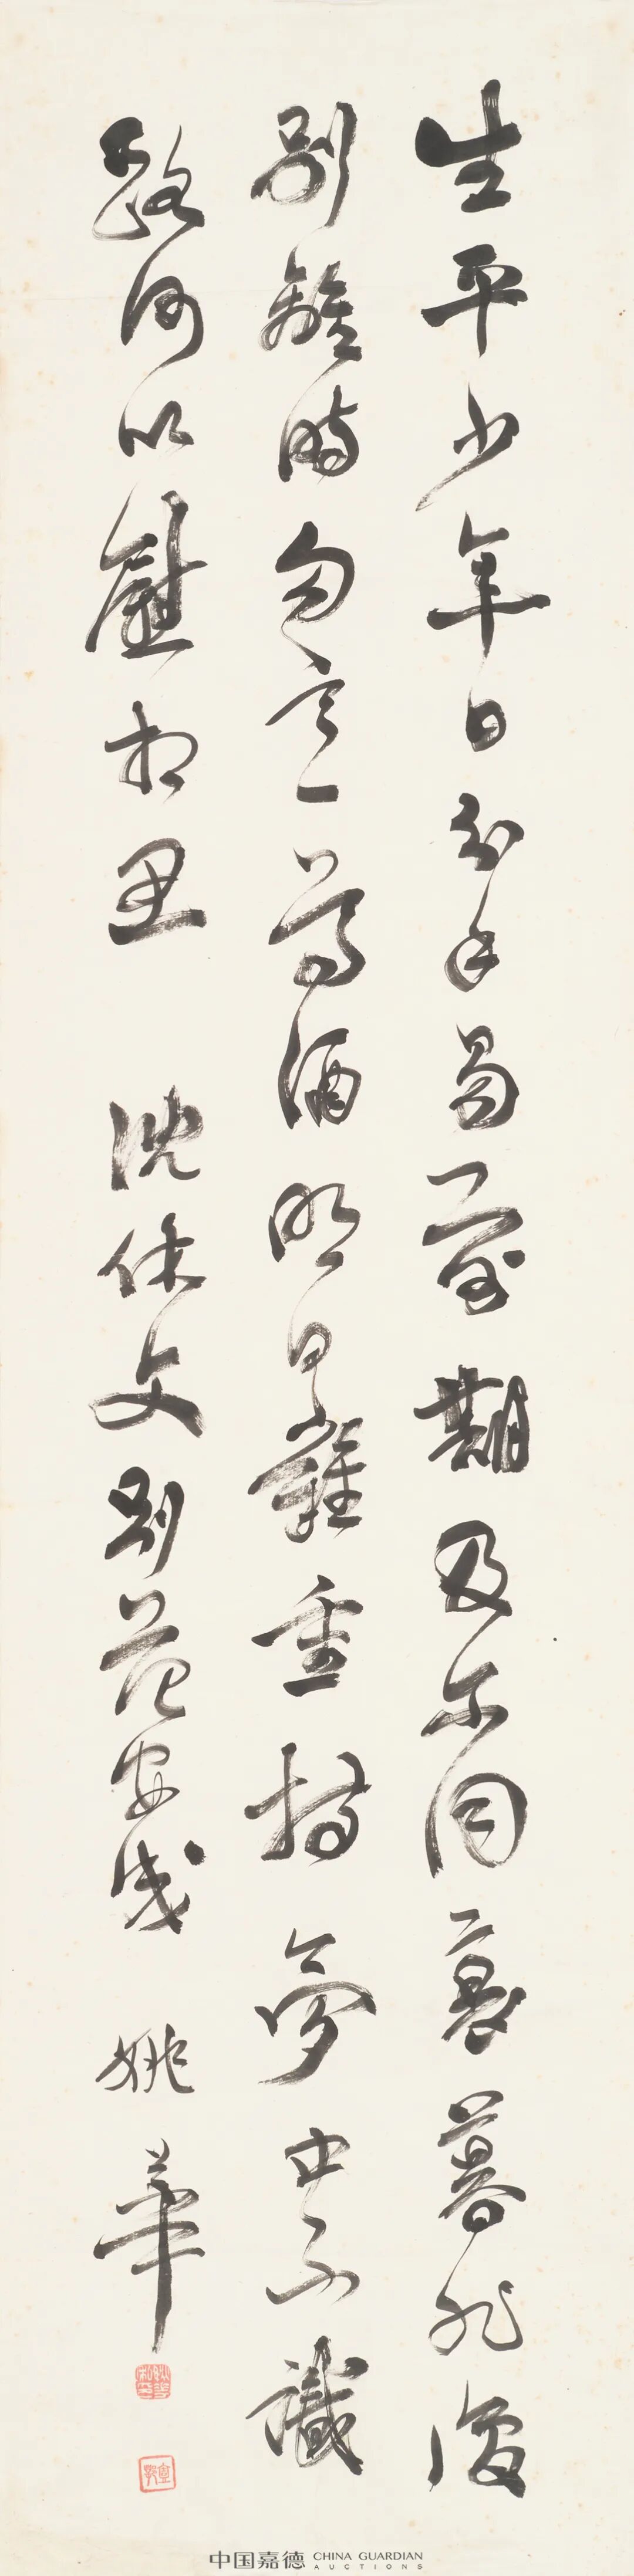 生平少年日分手易前期及尔同衰暮非復
別離時勿言一尊酒明日難重持夢中不識
路何以慰相思 沈休文別范安成 姚華
中国嘉德 CHINA GUARDIAN AUCTIONS